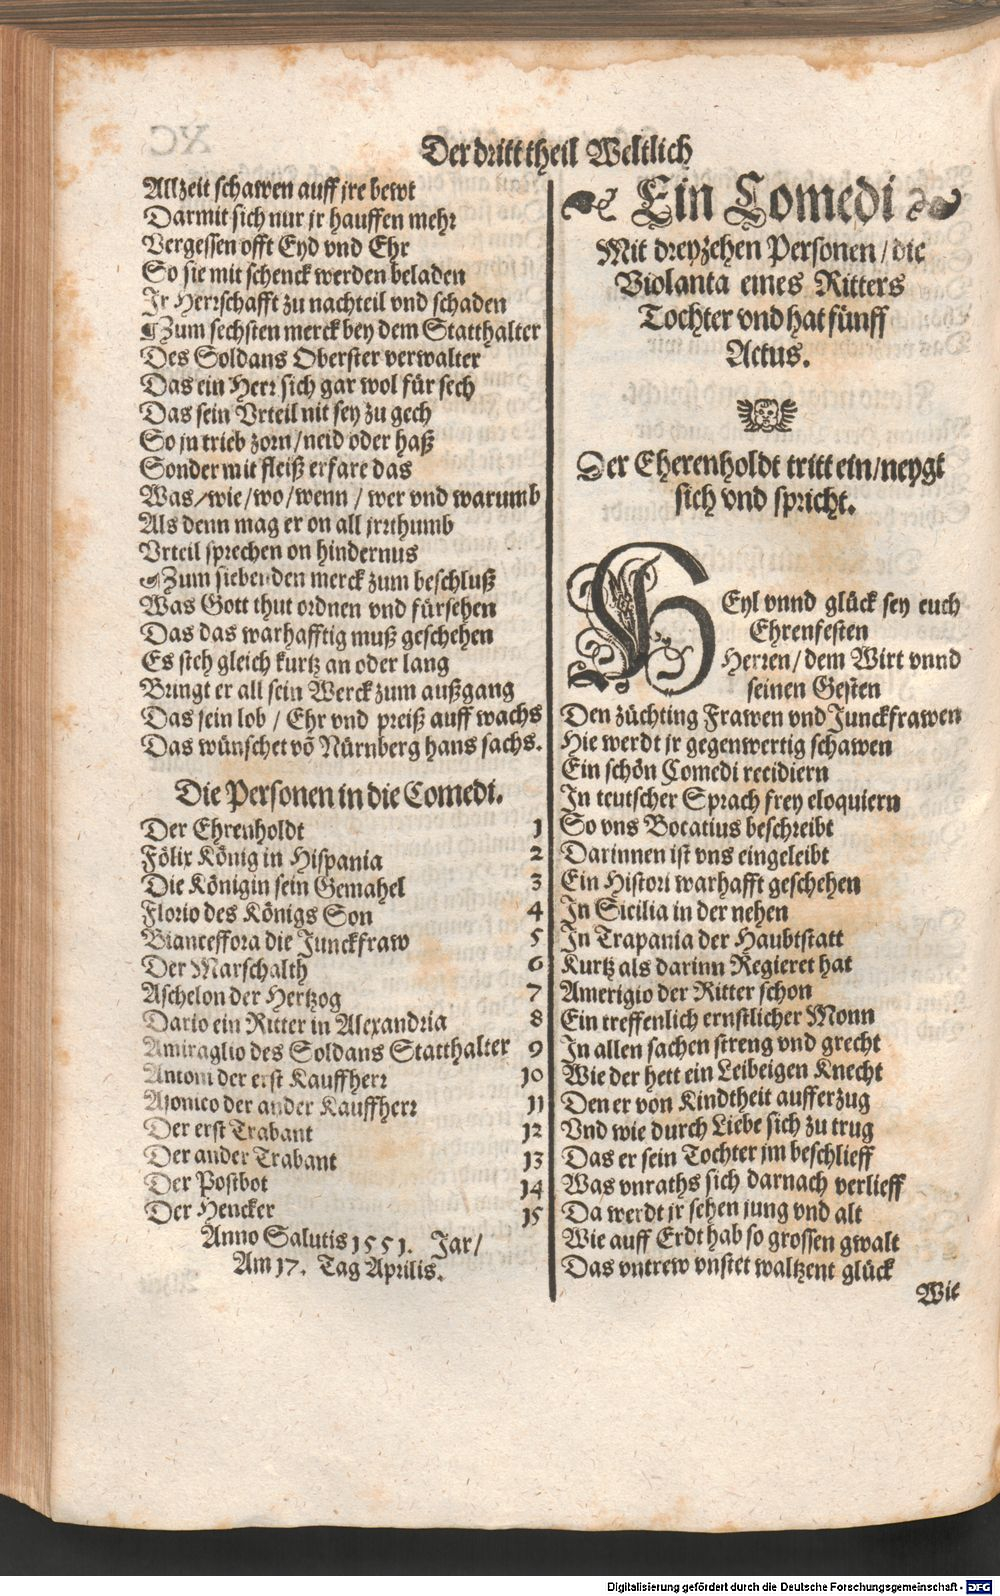 Der dritt theil Weltlich
Allzeit schawen auff jre bewt
Darmit sich nur jr hauffen mehr
Vergessen offt Eyd vnd Ehr
So sie mit schenck werden beladen
Jr Herrschafft zu nachteil vnd schaden
Zum sechsten merck bey dem Statthalter
Des Soldans Oberster verwalter
Das ein Herr sich gar wol für sech
Das sein Vrteil nit sey zu gech
So jn trieb zorn / neid oder haß
Sonder mit fleiß erfare das
Was / wie / wo / wenn / wer vnd warumb
Als denn mag er on all jrrthumb
Vrteil sprechen on hindernus
Zum siebenden merck zum beschluß
Was Gott thut ordnen vnd fürsehen
Das das warhafftig muß geschehen
Es steh gleich kurtz an oder lang
Bringt er all sein Werck zum außgang
Das sein lob / Ehr vnd preiß auff wachs
Das wünschet võ Nürnberg hans sachs.
Die Personen in die Comedi.
Der Ehrnholdt 1
Fölix König in Hispania 2
Die Königin sein Gemahel 3
Florio des Königs Son 4
Bianceffora die Junckfraw 5
Der Marschalth 6
Aschelon der Hertzog 7
Dario ein Ritter in Alexandria 8
Amiraglio des Soldans Statthalter 9
Antoni der erst Kauffherr 10
Aionico der ander Kauffherr 11
Der erst Trabant 12
Der ander Trabant 13
Der Postbot 14
Der Hencker 15
Anno Salutis 1551. Jar /
Am 17. Tag Aprilis.
Ein Comedi
Mit dreyzehen Personen / die
Violanta eines Ritters
Tochter vnd hat fünff
Actus.
Der Eherenholdt tritt ein / neygt
sich vnd spricht.
HEyl vnnd glück sey euch
Ehrenfesten
Herren / dem Wirt vnnd
seinen Gesten
Den züchting Frawen vnd Junckfrawen
Hie werdt jr gegenwertig schawen
Ein schön Comedi recidiern
Jn teutscher Sprach frey eloquiern
So vns Bocatius beschreibt
Darinnen ist vns eingeleibt
Ein Histori warhafft geschehen
Jn Sicilia in der nehen
Jn Trapania der Haubtstatt
Kurtz als darinn Regieret hat
Amerigio der Ritter schon
Ein treffenlich ernstlicher Monn
Jn allen sachen streng vnd grecht
Wie der hett ein Leibeigen Knecht
Den er von Kindtheit aufferzug
Vnd wie durch Liebe sich zu trug
Das er sein Tochter jm beschlieff
Was vnraths sich darnach verlieff
Da werdt jr sehen jung vnd alt
Wie auff Erdt hab so grossen gwalt
Das vntrew vnstet waltzent glück
Wie
Digitalisierung gefördert durch die Deutsche Forschungsgemeinschaft - DFG